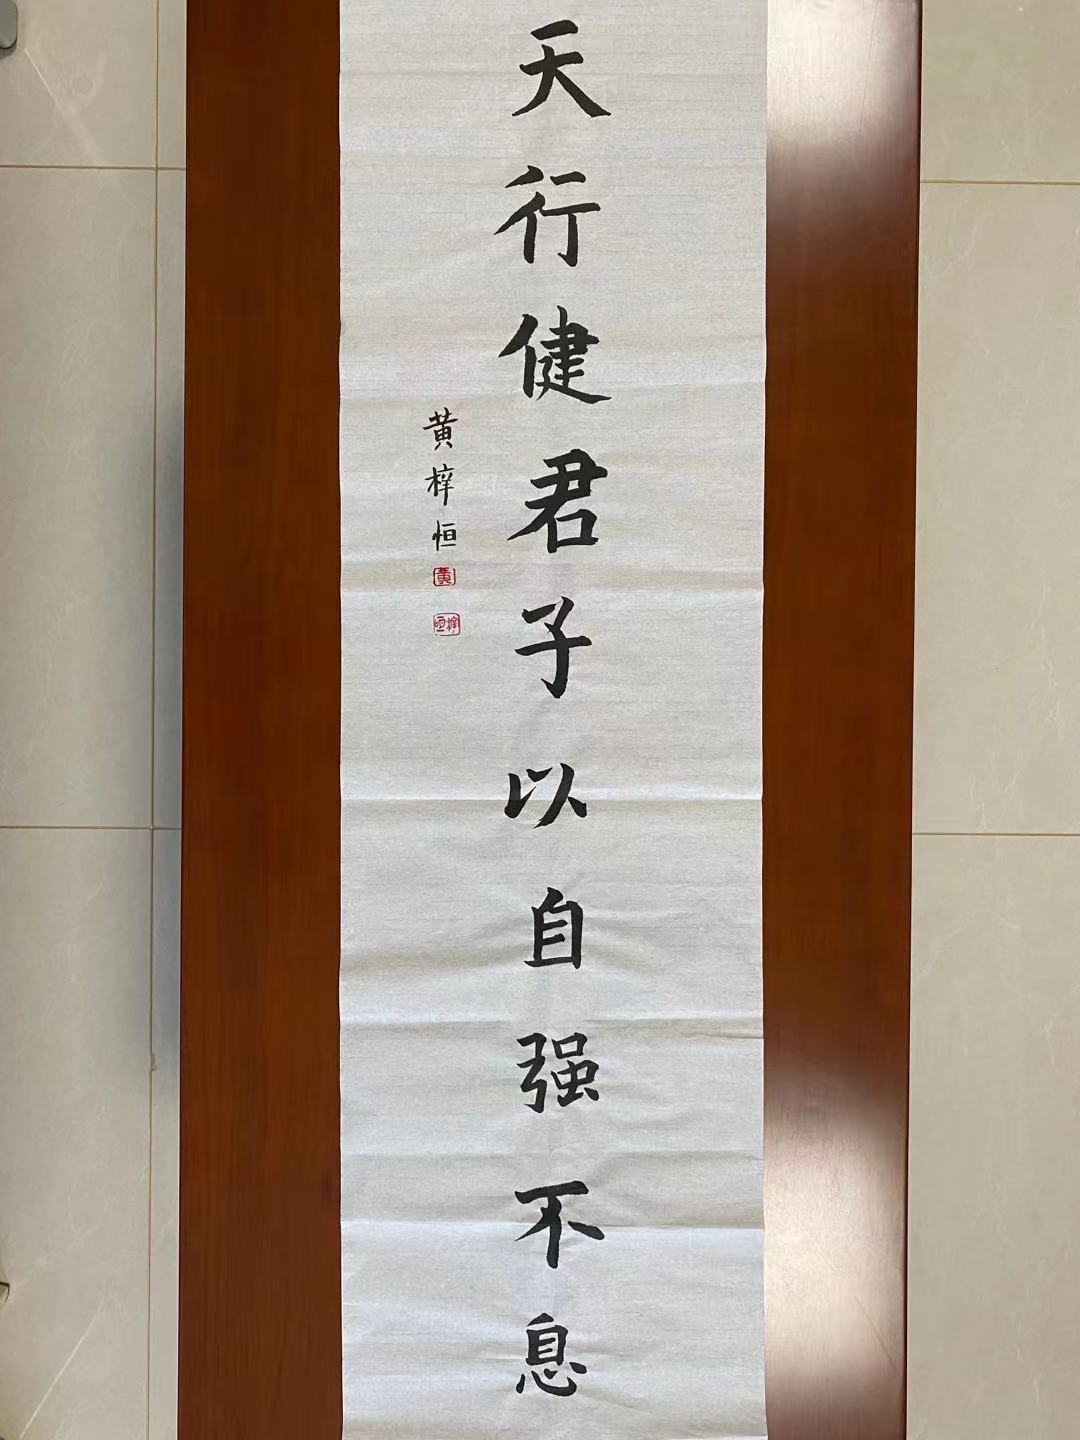 天行健君子以自强不息
黄梓恒
黄
梓恒